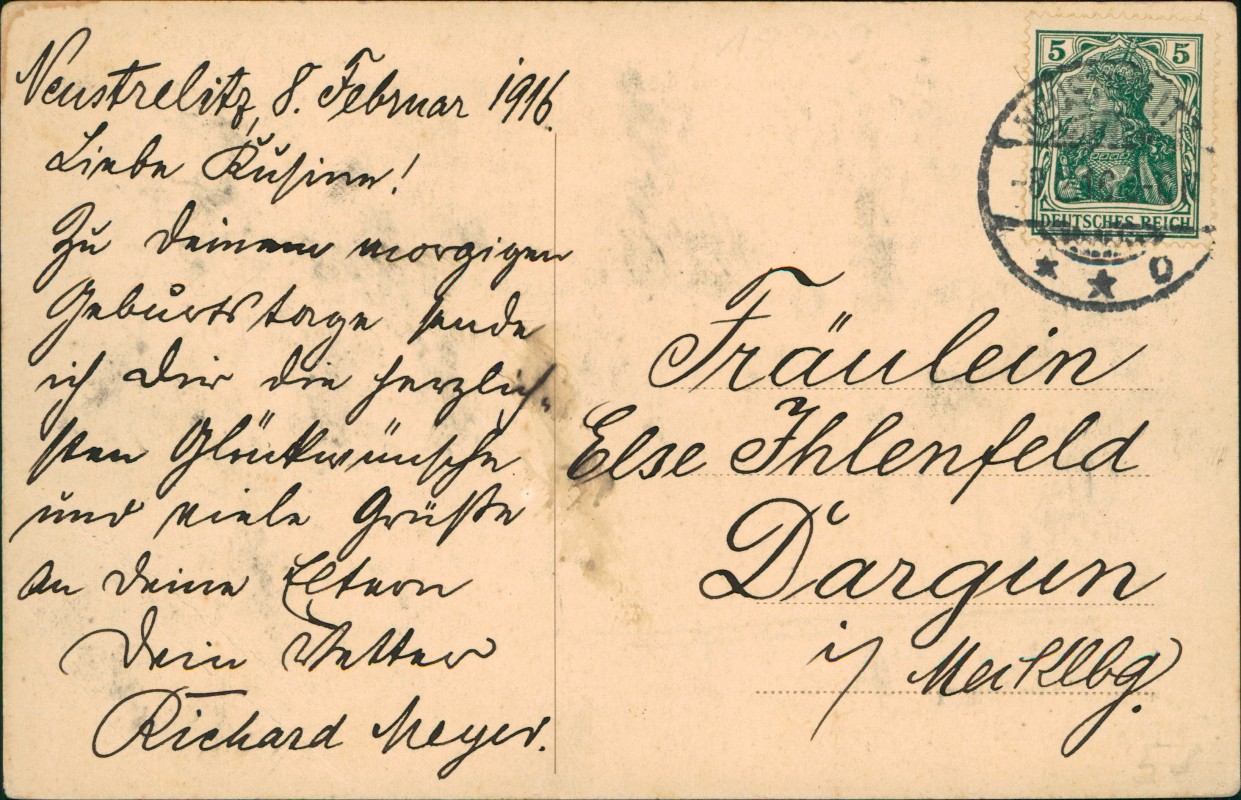 Neustrelitz, 8. Februar 1916.
Liebe Kusine!
Zu Deinem morgigen
Geburtstage sende
ich Dir die herzlich-
sten Glückwünsche
und viele Grüße
an Deine Eltern
Dein Vetter
Richard Meyer.
5 5
DEUTSCHES REICH
* * O
Fräulein
Else Ihlenfeld
Dargun
i/ Mecklbg.